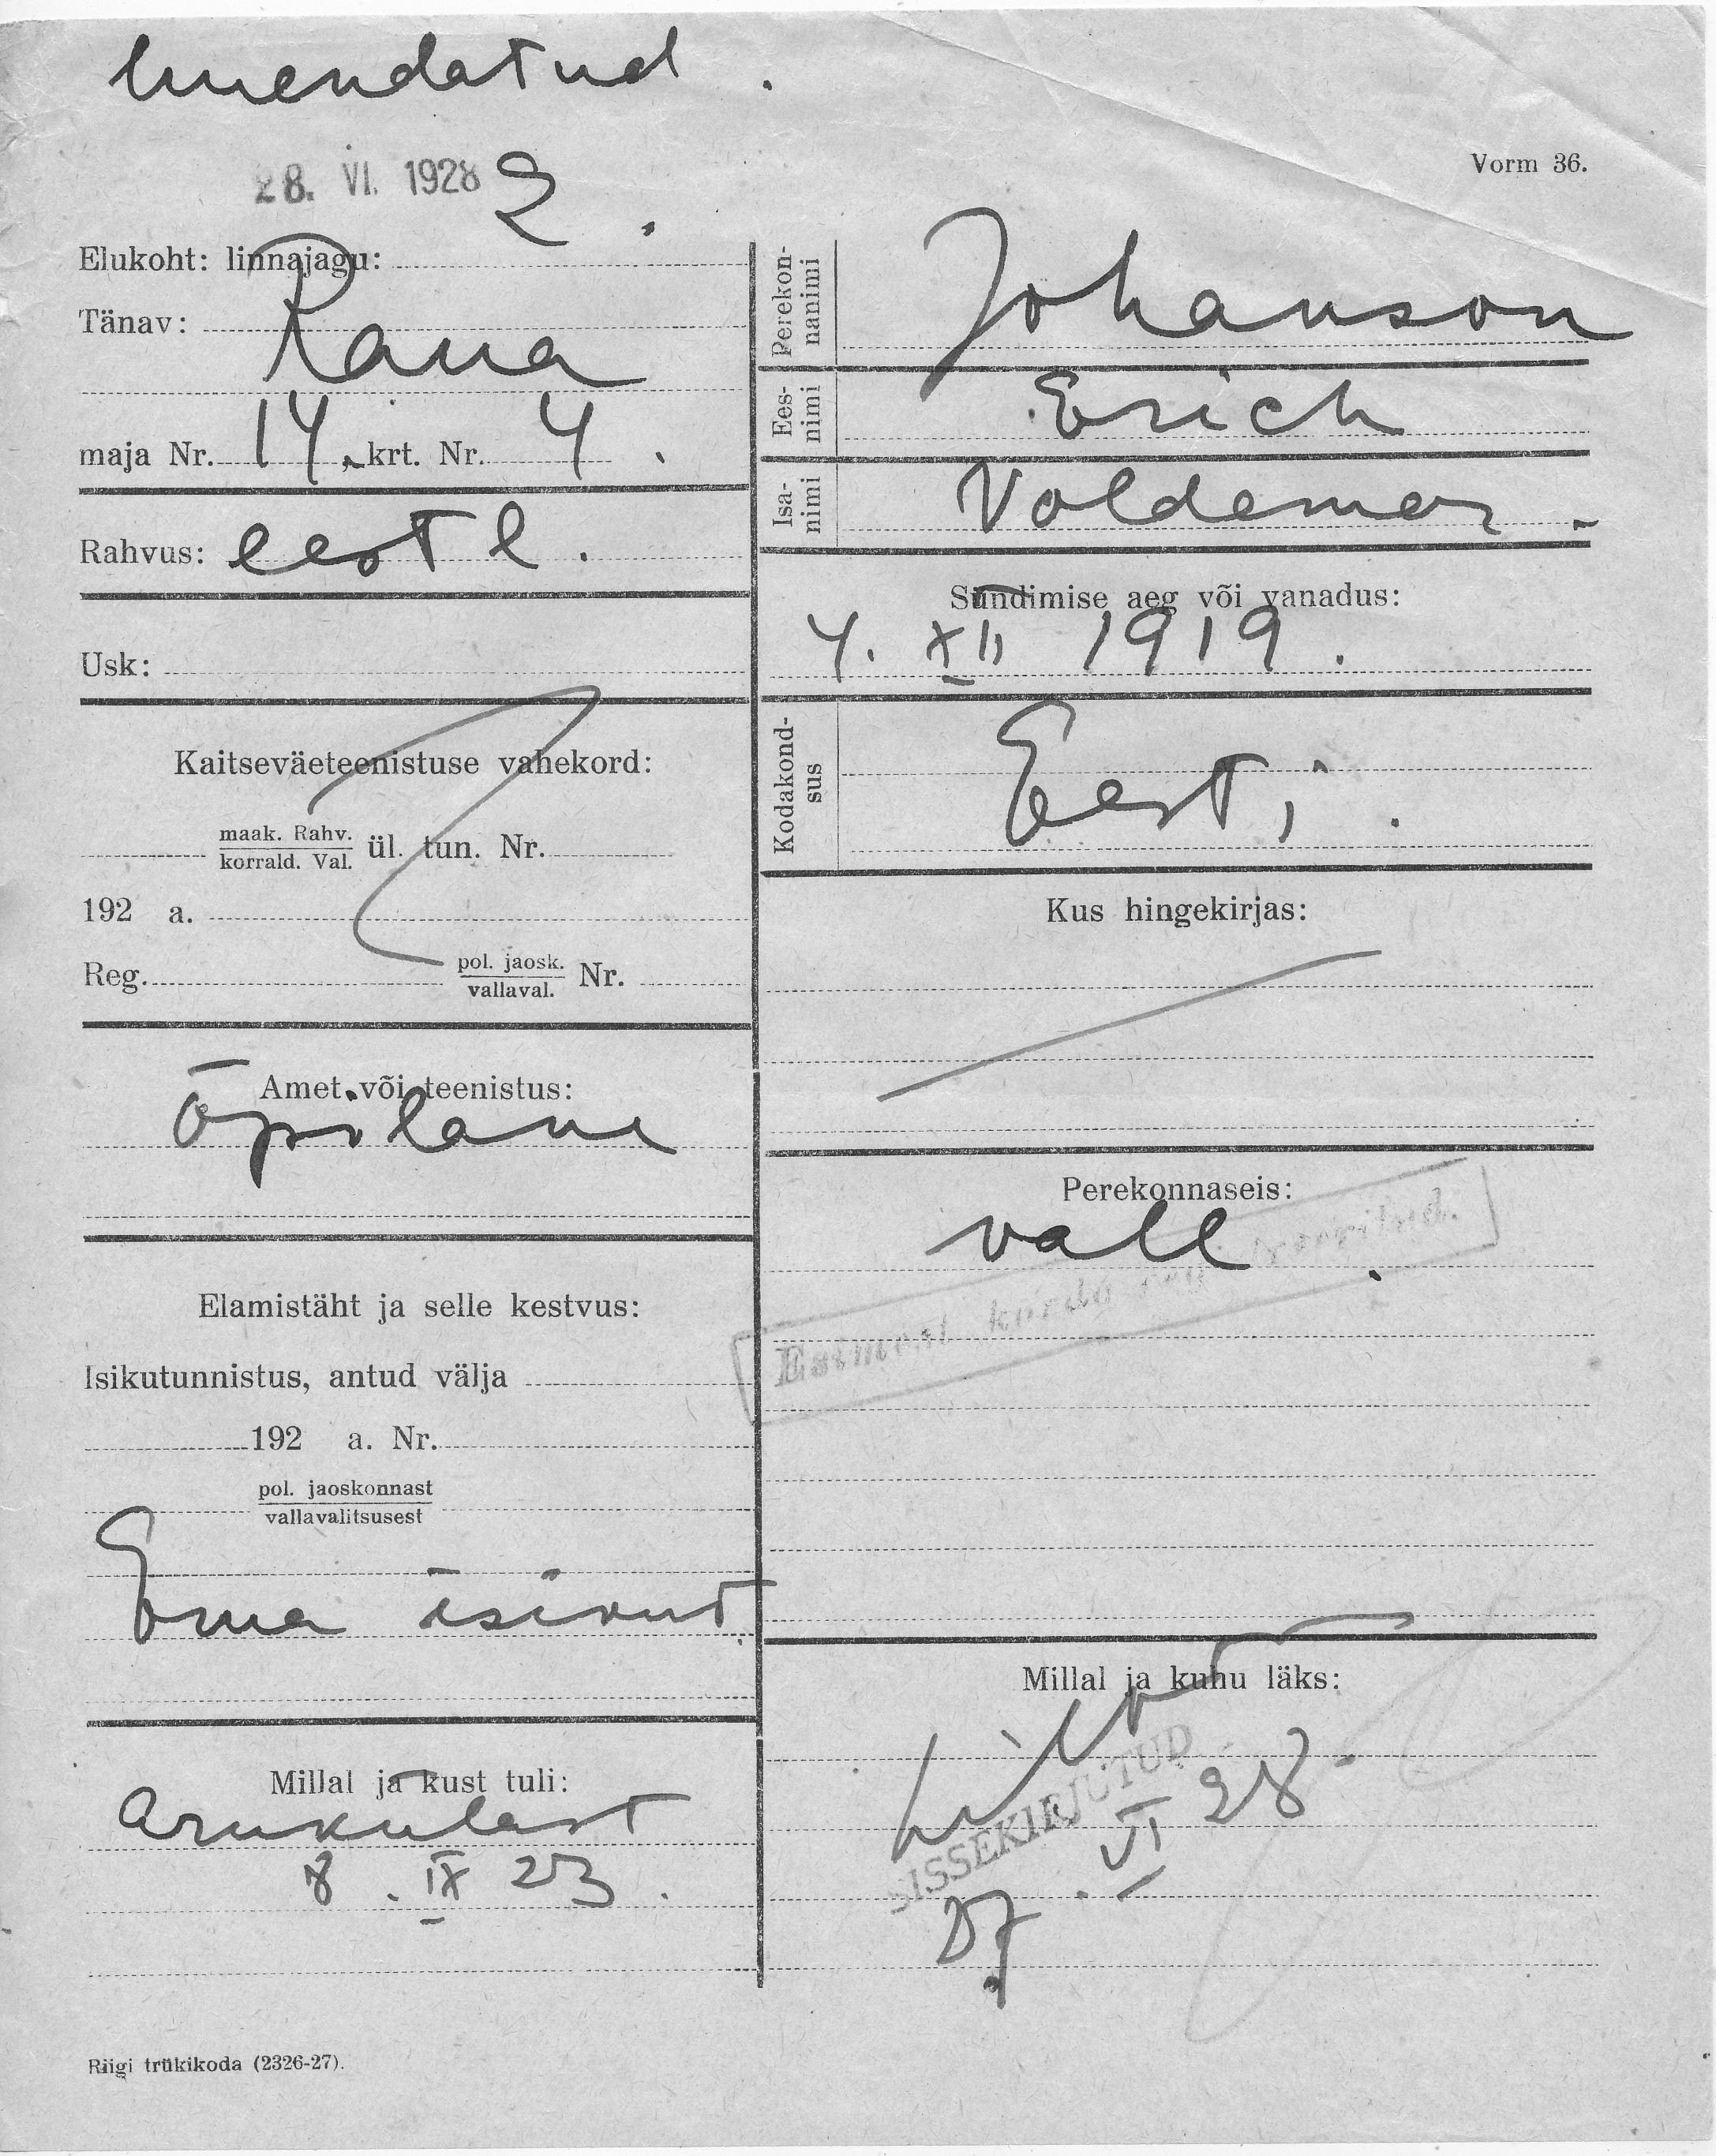 Uuendatud.
28. VI. 1928
Vorm 36.
Elukoht: linnajagu: 2.
Tänav: Raua
maja Nr. 14. krt. Nr. 4.
Rahvus: eestl.
Usk:
Kaitseväeteenistuse vahekord:
maak. Rahv.
korrald. Val. ül. tun. Nr.
192 a.
Reg. pol. jaosk.
vallaval. Nr.
Amet või teenistus:
Õpilane
Elamistäht ja selle kestvus:
Isikutunnistus, antud välja
192 a. Nr.
pol. jaoskonnast
vallavalitsusest
Ema isikut.
Millal ja kust tuli:
Arukulast
8. IX 23.
Perekon-
nanimi Johanson
Ees-
nimi Erich
Isa-
nimi Voldemar.
Sündimise aeg või vanadus:
4. XII 1919.
Kodakond-
sus Eesti.
Kus hingekirjas:
Perekonnaseis:
vall.
Esimest korda
Millal ja kuhu läks:
SISSEKIRJUTUD
27. VI 28.
Riigi trükikoda (2326-27).